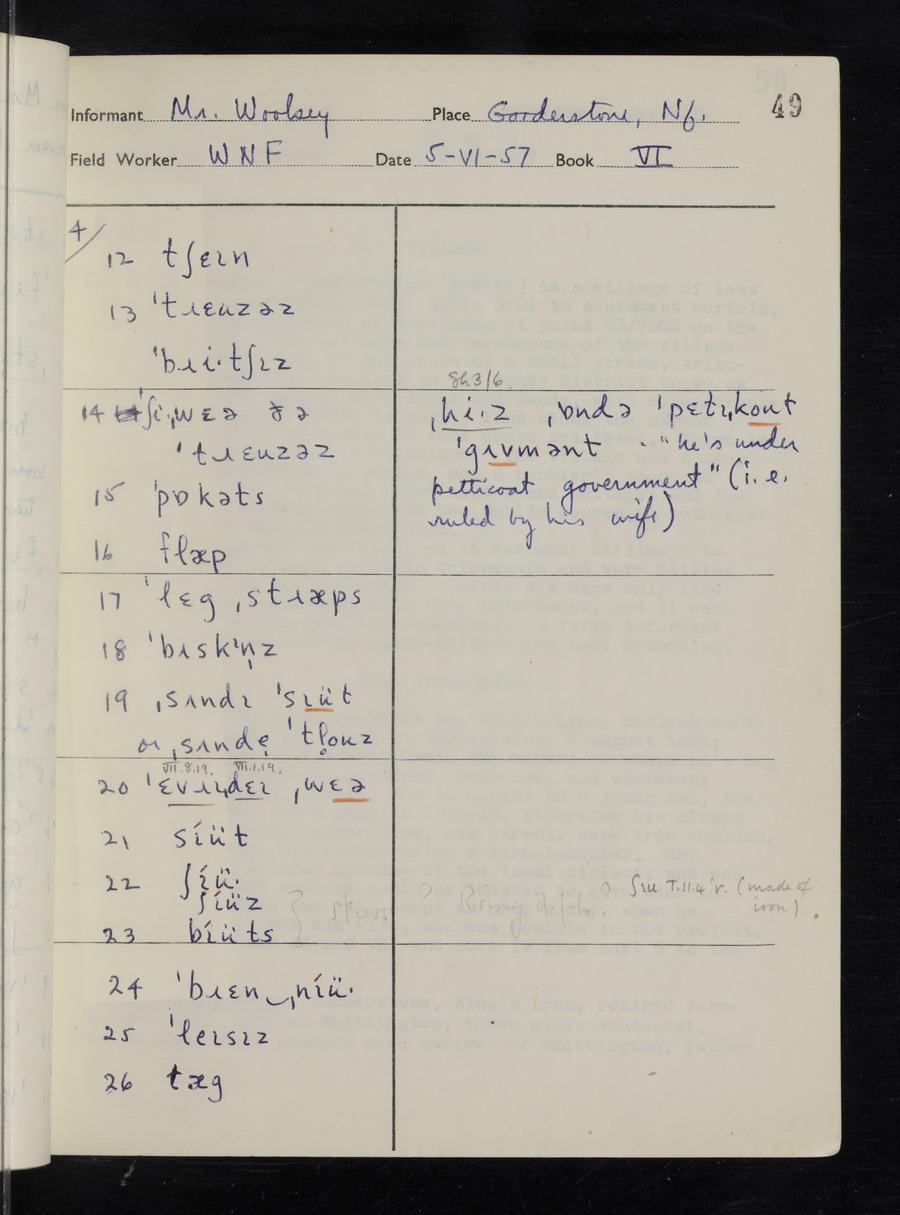 49
Informant Mr. Woolsey Place Gooderstone, Nf.
Field Worker W N F Date 5-VI-57 Book VI
4/
12 tʃɛɪn
13 ˈtɹɛuzəz
ˈbɹi·tʃɪz
14 ˈʃi·ˌwɛə ðə
ˈtɹɛuzəz
15 ˈpɒkəts
16 flæp
17 ˈlɛg ˌstɹæps
18 ˈbɪskˈn̩z
19 ˌsʌndɪ ˈsɪüt
or ˌsʌndẹ ˈtl̥ouz
VII.8.19. VII.1.19.
20 ˈɛvɹɪˌdɛɪ ˌwɛə
21 síüt
22 ʃíü·
ʃíüz
23 bíüts
24 ˈbɹɛn‿ˌníü·
25 ˈlɛɪsɪz
26 tæg
Sh 3/6.
ˌhi·z ˌʌndə ˈpɛtɪˌkout
ˈgɪvmənt - "he's under
petticoat government" (i.e.
ruled by his wife)
} stress? Rising diph.?
ʃɪu T.11.4 'r. (made of
iron).